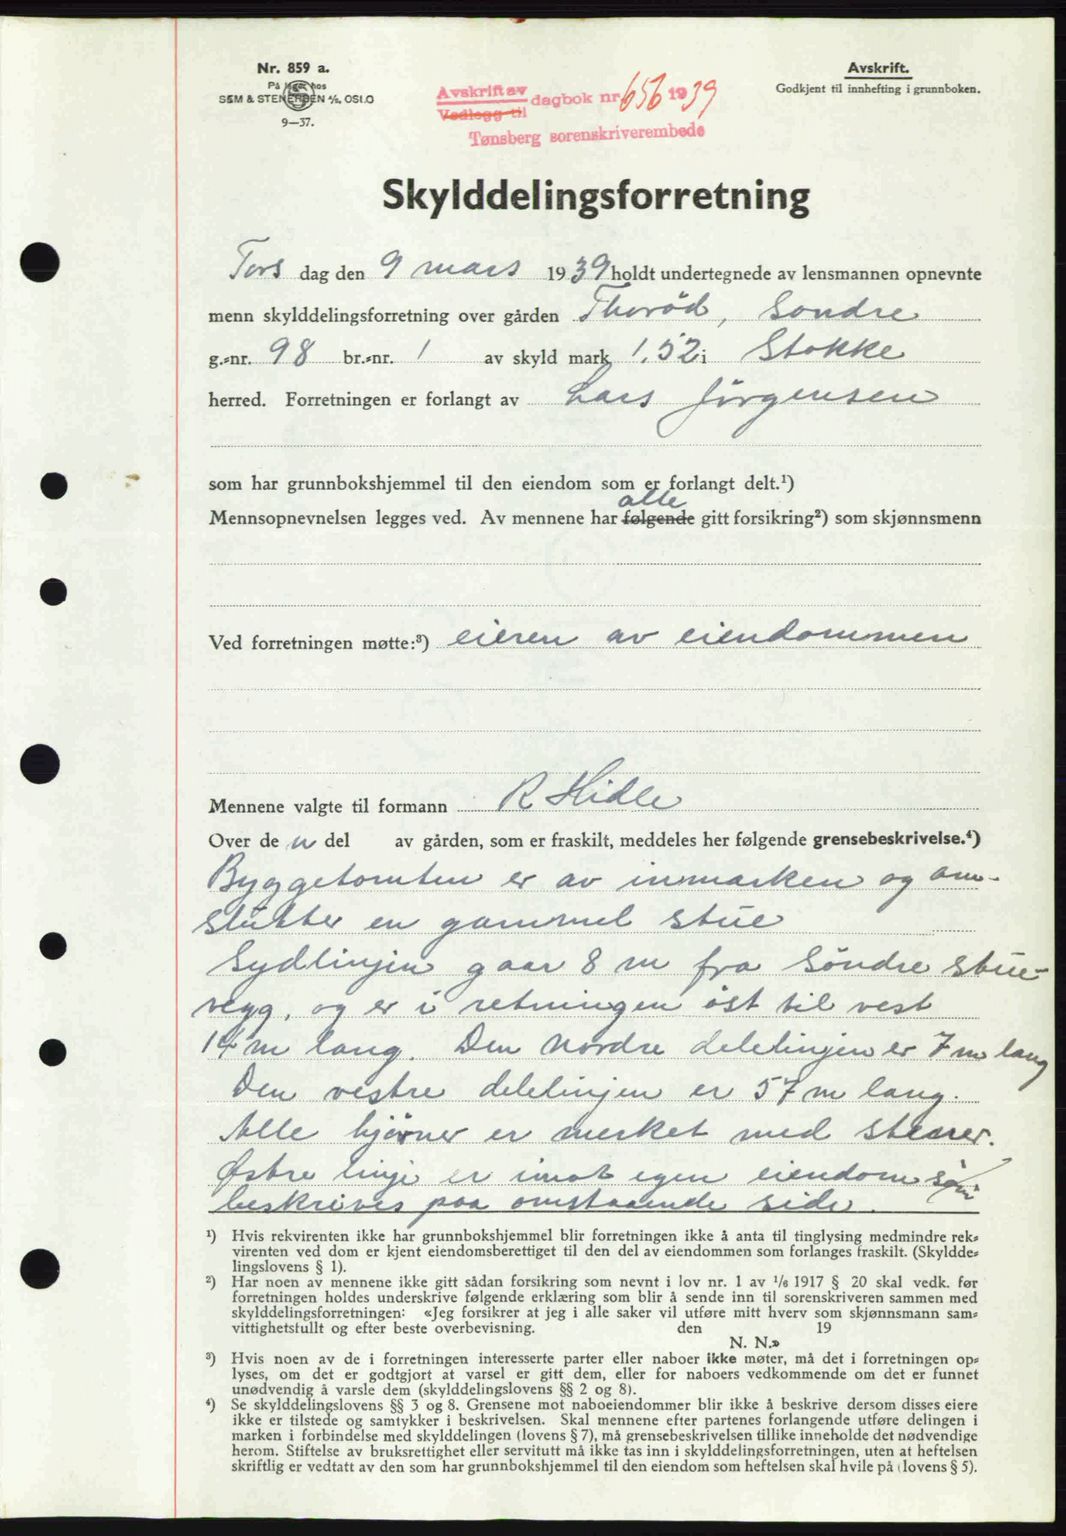 Nr. 859 a.
På lager hos
SEM & STENERSEN A/S, OSLO
9—37.
Avskrift av
Vedlegg til
dagbok nr 656 1939
Tønsberg sorenskriverembede
Avskrift.
Godkjent til innhefting i grunnboken.
Skylddelingsforretning
Tors dag den 9 mars 1939 holdt undertegnede av lensmannen opnevnte
menn skylddelingsforretning over gården Thorød, Søndre
g.-nr. 98 br.-nr. 1 av skyld mark 1.52 i Stokke
herred. Forretningen er forlangt av Lars Jörgensen
som har grunnbokshjemmel til den eiendom som er forlangt delt.¹)
alle
Mennsopnevnelsen legges ved. Av mennene har følgende gitt forsikring²) som skjønnsmenn
Ved forretningen møtte:³) eieren av eiendommen
Mennene valgte til formann R Hidle
Over de n del av gården, som er fraskilt, meddeles her følgende grensebeskrivelse.⁴)
Byggetomten er av innmarken og om-
slutter en gammel stue
Sydlinjen gaar 8 m fra Söndre stue-
vegg, og er i retningen öst til vest
14 m lang. Den nordre delelinjen er 7 m lang
Den vestre delelinjen er 57 m lang.
Alle hjörner er merket med stener.
Østre linje er imot egen eiendom som
beskrives paa omstaaende side.
¹) Hvis rekvirenten ikke har grunnbokshjemmel blir forretningen ikke å anta til tinglysing medmindre rek-
virenten ved dom er kjent eiendomsberettiget til den del av eiendommen som forlanges fraskilt. (Skyldde-
lingslovens § 1).
²) Har noen av mennene ikke gitt sådan forsikring som nevnt i lov nr. 1 av ¹/₆ 1917 § 20 skal vedk. før
forretningen holdes underskrive følgende erklæring som blir å sende inn til sorenskriveren sammen med
skylddelingsforretningen: «Jeg forsikrer at jeg i alle saker vil utføre mitt hverv som skjønnsmann sam-
vittighetsfullt og efter beste overbevisning. den 19
N. N.»
³) Hvis noen av de i forretningen interesserte parter eller naboer ikke møter, må det i forretningen op-
lyses, om det er godtgjort at varsel er gitt dem, eller for naboers vedkommende om det er funnet
unødvendig å varsle dem (skylddelingslovens §§ 2 og 8).
⁴) Se skylddelingslovens §§ 3 og 8. Grensene mot naboeiendommer blir ikke å beskrive dersom disses eiere
ikke er tilstede og samtykker i beskrivelsen. Skal mennene efter partenes forlangende utføre delingen i
marken i forbindelse med skylddelingen (lovens § 7), må grensebeskrivelsen tillike inneholde det nødvendige
herom. Stiftelse av bruksrettighet eller servitutt må ikke tas inn i skylddelingsforretningen, uten at heftelsen
skriftlig er vedtatt av den som har grunnbokshjemmel til den eiendom som heftelsen skal hvile på (lovens § 5).